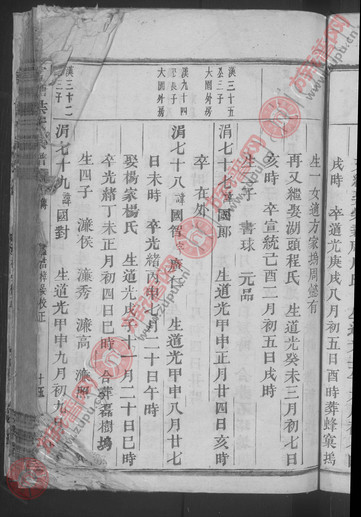 戌時 卒道光庚戌八月初五日酉時葬蜂窠塢
生一女適方家塢周懋有
再又繼娶湖頭程氏 生道光癸未三月初七日
亥時 卒宣統己酉二月初五日戌時
生 書球 元品
漢三十五
公三子
大園外房
涓七十七諱國郎 生道光甲申正月廿四日亥時
卒在外
漢九十四
公長子
大園外房
涓七十八諱國智 生道光甲申八月廿七
日未時 卒光緒丙申 二月二十日午時
娶楊家楊氏 生道光戊 十一月二十日巳時
卒光緒丁未正月初四日巳時 合葬磊樹塢
生四子 濂俟 濂秀 濂高 濂照
漢三十二
公三子
涓七十九諱國對 生道光甲申九月初九日
校正
十五